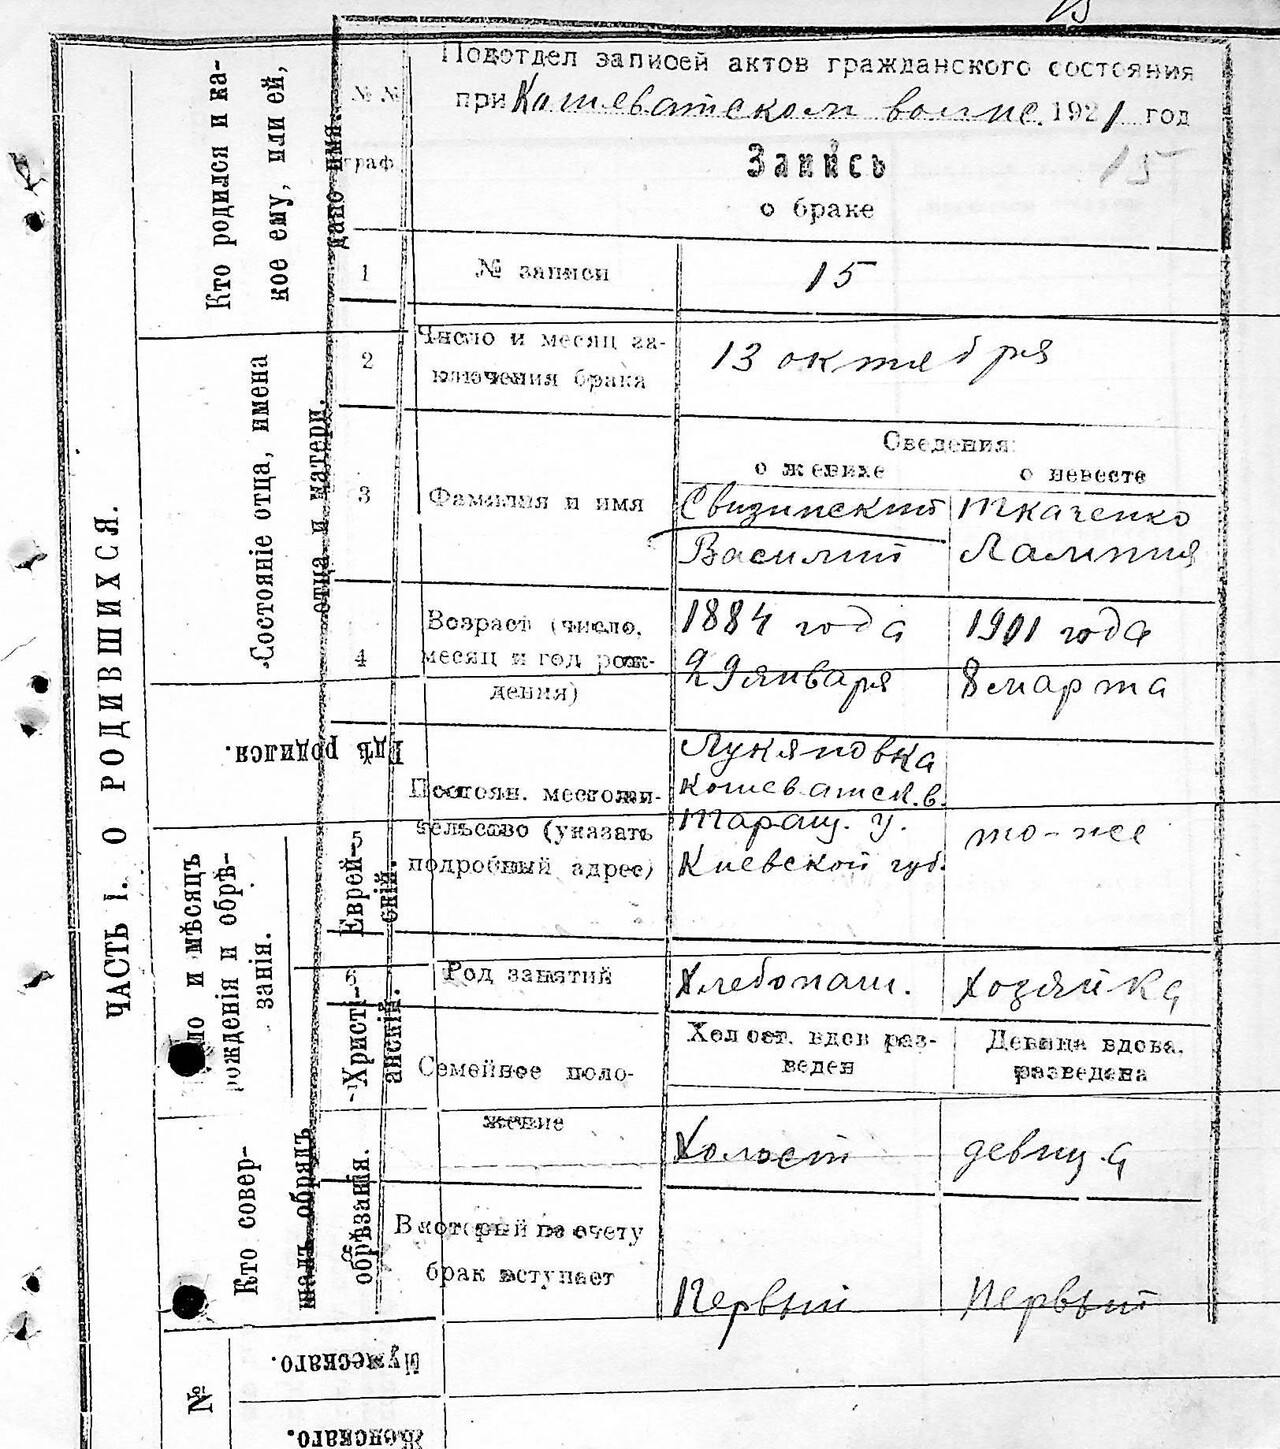 15
Подотдел записей актов гражданского состояния
при Кашеватском волис. 1921 год
№№
граф
Запись
15
о браке
1
№ записи
15
2
Число и месяц за-
ключения брака
13 октября
Сведения:
о женихе
о невесте
3
Фамилия и имя
Свизинский
Василий
Ткаченко
4
Возраст (число,
месяц и год рож-
дения)
1884 года
29 января
1901 года
8 марта
5
Постоян. местожи-
тельство (указать
подробный адрес)
Лукяновка
Кошеватск. в.
Таращ. у.
Киевской губ.
то-же
6
Род занятий
Хлебопаш.
Хозяйка
Семейное поло-
жение
Холост. вдов раз-
веден
Девица вдова,
разведена
Холост
девица
8
В который по счету
брак вступает
Первый
Первый
ЧАСТЬ I. О РОДИВШИХСЯ.
Кто родился и ка-
кое ему, или ей,
дано имя.
Состояніе отца, имена
отца и матери.
Гдѣ родился.
и мѣсяцъ
рожденія и обрѣ-
занія.
Еврей-
скій.
Христі-
анскій.
Кто совер-
шалъ обрядъ
обрѣзанія.
№
Мужескаго.
Женскаго.